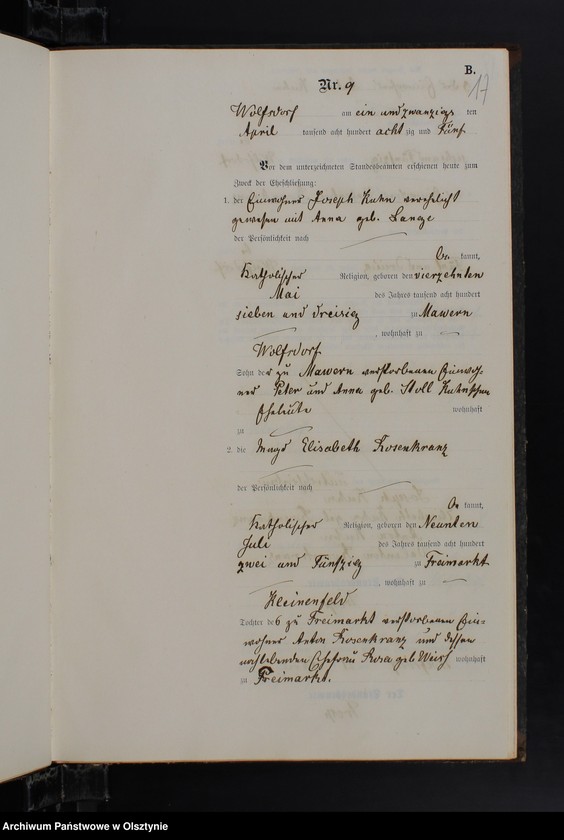 B.
17
Nr. 9
Wolfsdorf am ein und zwanzigs ten
April tausend acht hundert acht zig und Fünf
Vor dem unterzeichneten Standesbeamten erschienen heute zum
Zweck der Eheschließung:
1. der Einwohner Joseph Kuhn verehlicht
gewesen mit Anna geb. Lange
der Persönlichkeit nach
be kannt,
Katholischer Religion, geboren den vierzehnten
Mai des Jahres tausend acht hundert
sieben und dreisig zu Mawern
, wohnhaft zu
Wolfsdorf
Sohn der zu Mawern verstorbenen Einwoh-
ner Peter und Anna geb. Stoll Kuhnschen
Eheleute wohnhaft
zu
2. die Magd Elisabeth Rosenkranz
der Persönlichkeit nach
be kannt,
Katholischer Religion, geboren den Neunten
Juli des Jahres tausend acht hundert
zwei und Fünfzig zu Freimarkt
, wohnhaft zu
Kleinenfeld
Tochter des zu Freimarkt verstorbenen Ein-
wohner Anton Rosenkranz und dessen
nachlebenden Ehefrau Rosa geb. wohnhaft
zu Freimarkt.
Archiwum Państwowe w Olsztynie